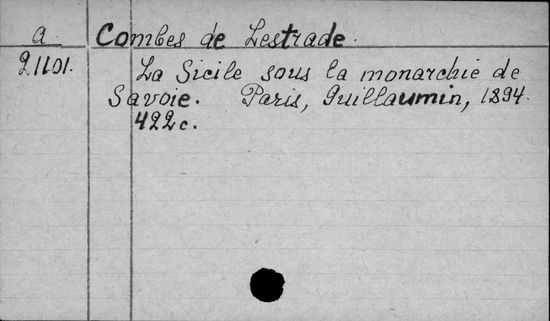 a. Combes de Lestrade.
21101. La Sicile sous la monarchie de
Savoie. Paris, Guillaumin, 1894.
422 c.